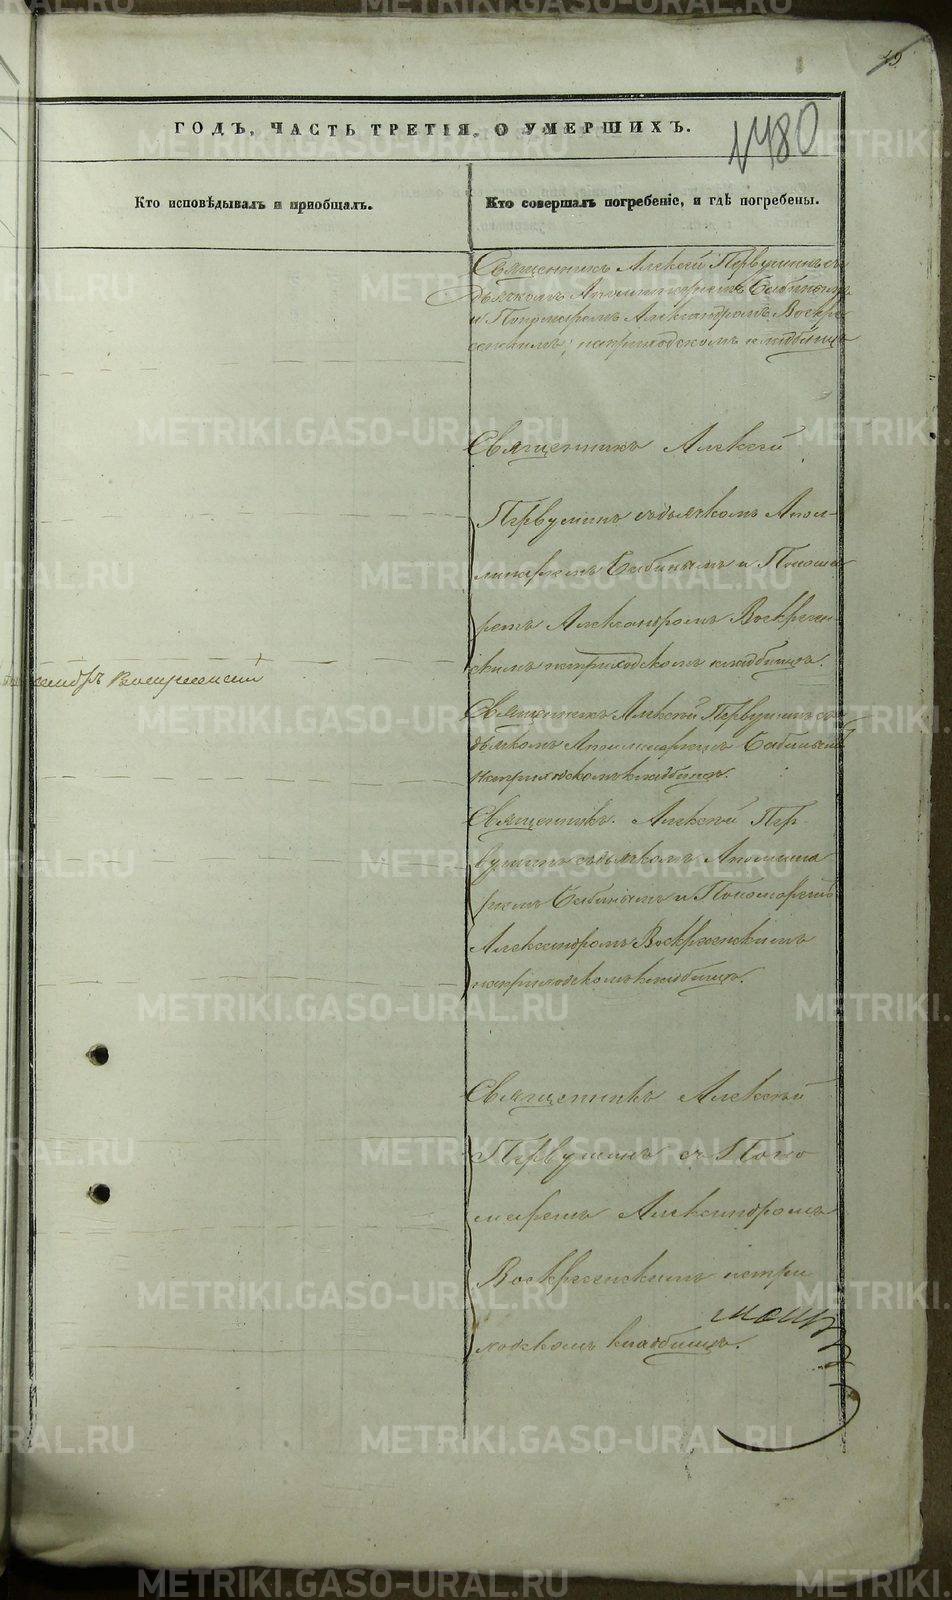 ГОДЪ, ЧАСТЬ ТРЕТІЯ, О УМЕРШИХЪ.
1480
Кто исповѣдывалъ и приобщалъ.
Кто совершалъ погребеніе, и гдѣ погребены.
Священникъ Алексей Первушинъ съ
дьячкомъ Аполинаріемъ Бабинымъ
и Пономаремъ Александромъ Воскре
сенскимъ, на приходскомъ кладбищѣ
Священникъ Алексей
Первушинъ съ дьячкомъ Апол-
линаріемъ Бабинымъ и Понома
ремъ Александромъ Воскресен-
скимъ на приходскомъ кладбищѣ.
Священникъ Алексѣй Первушинъ съ
дьячкомъ Аполинаріемъ Бабинымъ
на приходскомъ кладбищѣ.
Священникъ Алексѣй Пер-
вушинъ съ дьячкомъ Аполлина
ріемъ Бабинымъ и Пономаремъ
Александромъ Воскресенскимъ
на приходскомъ кладбищѣ.
Священникъ Алексѣй
Первушинъ съ Поно
маремъ Александромъ
Воскресенскимъ на при
ходскомъ кладбищѣ.
METRIKI.GASO-URAL.RU